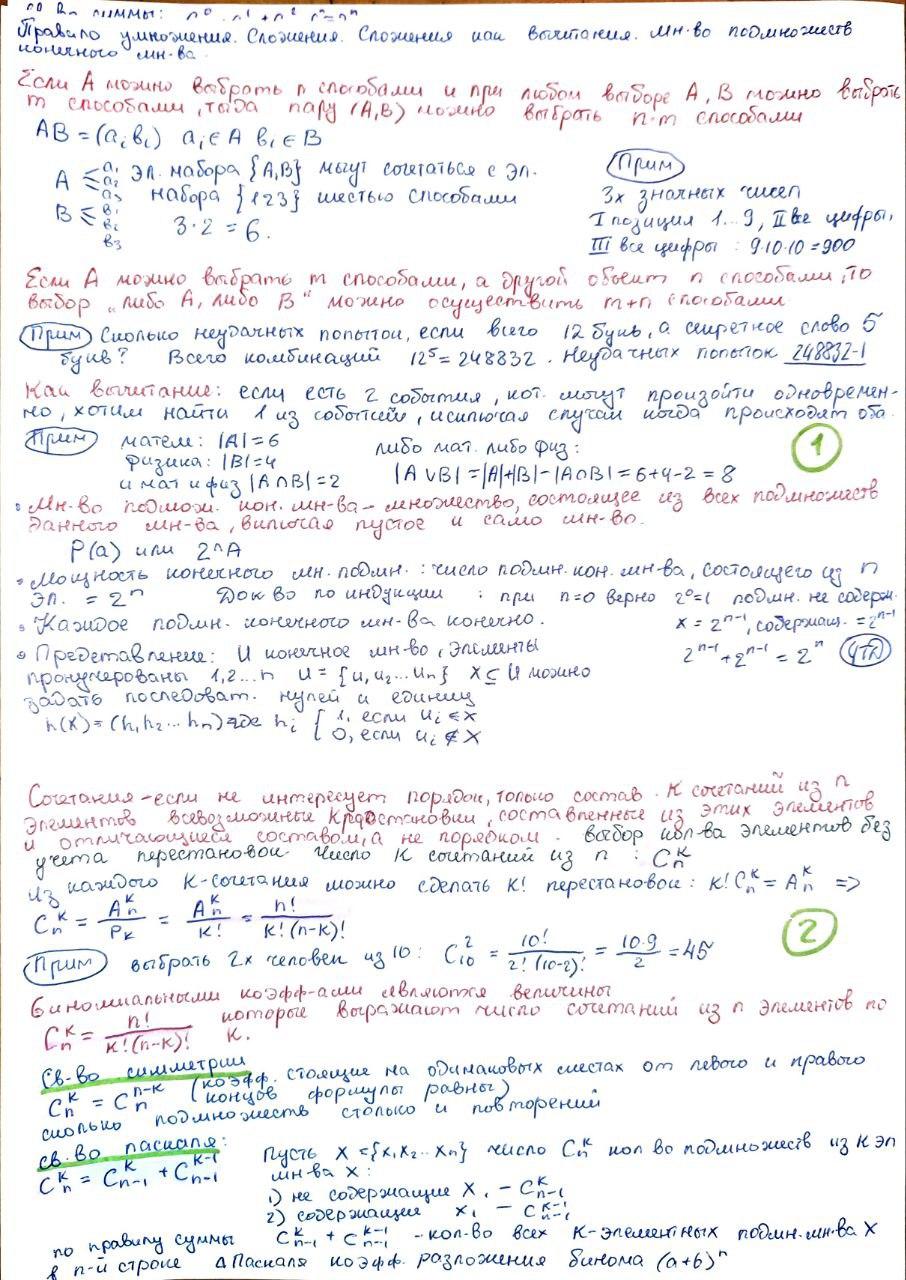 суммы: n⁰ · n¹ + n² nⁿ = nⁿ
Правило умножения. Сложения. Сложения как вычитания. Мн-во подмножеств
конечного мн-ва.
Если А можно выбрать n способами и при любом выборе А, В можно выбрать
m способами, тогда пару (А,В) можно выбрать n·m способами
AB = (aᵢ bᵢ) aᵢ ∈ A bᵢ ∈ B
A a₁ a₂ a₃
B b₁ b₂ b₃
эл. набора {A,B} могут сочетаться с эл.
набора {123} шестью способами
3·2 = 6.
Прим
3х значных чисел
I позиция 1...9, II все цифры,
III все цифры : 9·10·10 = 900
Если А можно выбрать m способами, а другой объект n способами, то
выбор „либо А, либо В" можно осуществить m+n способами
Прим Сколько неудачных попыток, если всего 12 букв, а секретное слово 5
букв? Всего комбинаций 12⁵ = 248832. Неудачных попыток 248832-1
Как вычитание: если есть 2 события, кот. могут произойти одновремен-
но, хотим найти 1 из событий, исключая случаи когда происходят оба.
Прим матем: |A|=6
физика: |B|=4
и мат и физ |A∩B|=2
либо мат. либо физ:
|A∨B| = |A|+|B|-|A∩B| = 6+4-2 = 8
1
Мн-во подмнож. кон. мн-ва – множество, состоящее из всех подмножеств
данного мн-ва, включая пустое и само мн-во.
P(a) или 2^A
Мощность конечного мн. подмн. : число подмн. кон. мн-ва, состоящего из n
эл. = 2ⁿ Док во по индукции : при n=0 верно 2⁰=1 подмн. не содерж.
x = 2ⁿ⁻¹, содержащ. = 2ⁿ⁻¹
2ⁿ⁻¹ + 2ⁿ⁻¹ = 2ⁿ ЧТД
Каждое подмн. конечного мн-ва конечно.
Представление: U конечное мн-во, элементы
пронумерованы 1,2...n U = {u₁ u₂ ... uₙ} X ⊆ U можно
задать последоват. нулей и единиц
h(X) = (h₁ h₂ ... hₙ) где hᵢ { 1, если uᵢ ∈ X
0, если uᵢ ∉ X
Сочетания – если не интересует порядок, только состав. К сочетаний из n
элементов всевозможные расстановки, составленные из этих элементов
и отличающиеся составом, а не порядком. выбор кол-ва элементов без
учета перестановок. Число К сочетаний из n : Cₙᵏ
Из каждого К-сочетания можно сделать К! перестановок: K! Cₙᵏ = Aₙᵏ =>
Cₙᵏ = Aₙᵏ/Pₖ = Aₙᵏ/K! = n!/K!(n-K)!
2
Прим выбрать 2х человек из 10: C₁₀² = 10!/2!(10-2)! = 10·9/2 = 45
Биномиальными коэфф-ами являются величины
Cₙᵏ = n!/K!(n-K)! которые выражают число сочетаний из n элементов по
К.
Св-во симметрии
Cₙᵏ = Cₙⁿ⁻ᵏ (коэфф. стоящие на одинаковых местах от левого и правого
концов формулы равны)
сколько подмножеств столько и повторений
св-во паскаля:
Cₙᵏ = Cₙ₋₁ᵏ + Cₙ₋₁ᵏ⁻¹
Пусть X = {x₁ x₂ ... xₙ} число Cₙᵏ кол во подмножеств из К эл
мн-ва X:
1) не содержащие x₁ – Cₙ₋₁ᵏ
2) содержащие x₁ – Cₙ₋₁ᵏ⁻¹
по правилу суммы Cₙ₋₁ᵏ + Cₙ₋₁ᵏ⁻¹ – кол-во всех К-элементных подмн. мн-ва X
в n-й строке Δ Паскаля коэфф. разложения бинома (a+b)ⁿ